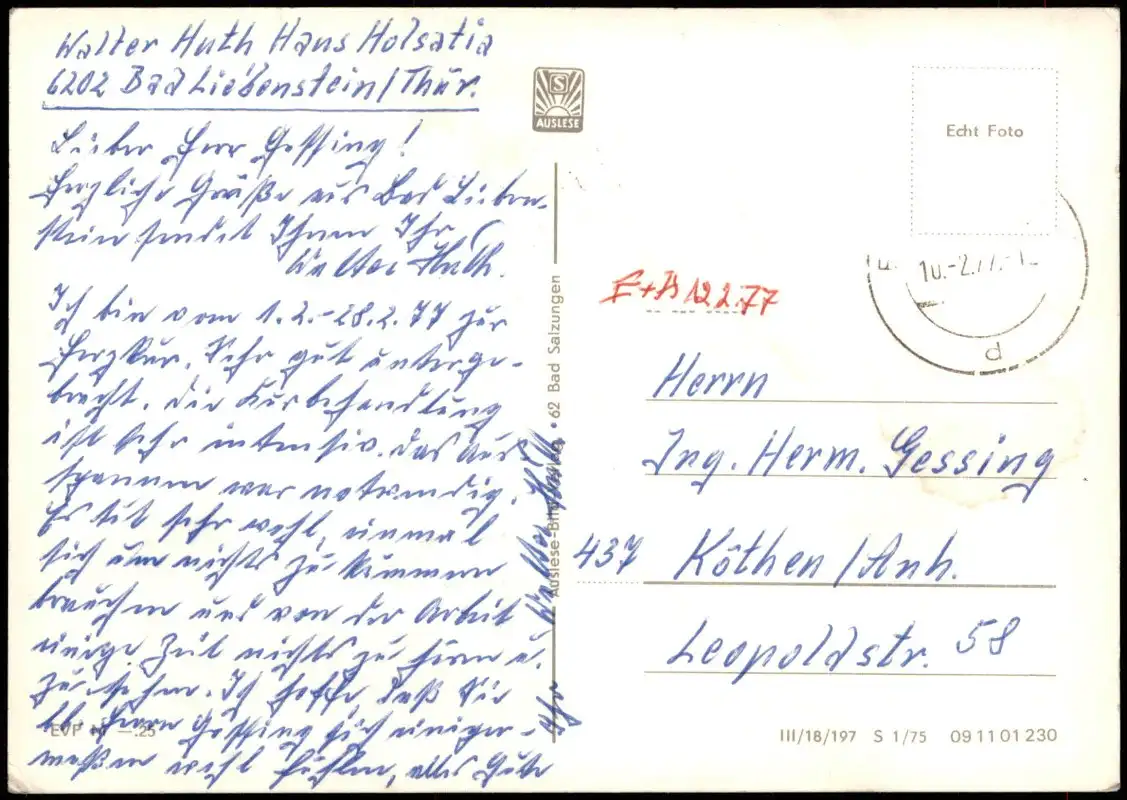 Walter Huth Haus Holsatia
6202 Bad Liebenstein/Thür.
Lieber Herr Gessing!
Herzliche Grüße aus Bad Lieben-
stein sendet Ihnen Ihr
Walter Huth.
Ich bin vom 1.2.-28.2.77 zur
Herzkur. Sehr gut unterge-
bracht. Die Kurbehandlung
ist sehr intensiv. Das Aus-
spannen war notwendig.
Es tut sehr wohl, einmal
sich um nichts zu kümmern
brauchen und von der Arbeit
einige Zeit nichts zu hören u.
zu sehen. Ich hoffe, daß Sie
lb. Herrn Gessing sich einiger-
maßen wohl fühlen, alles Gute
Ihr Walter Huth
EVP M —.25
S
AUSLESE
Auslese-Bild-Verlag • 62 Bad Salzungen
Echt Foto
10.-2.77.-1
d
E+B 12.2.77
Herrn
Ing. Herm. Gessing
437 Köthen/Anh.
Leopoldstr. 58
III/18/197 S 1/75 09 11 01 230